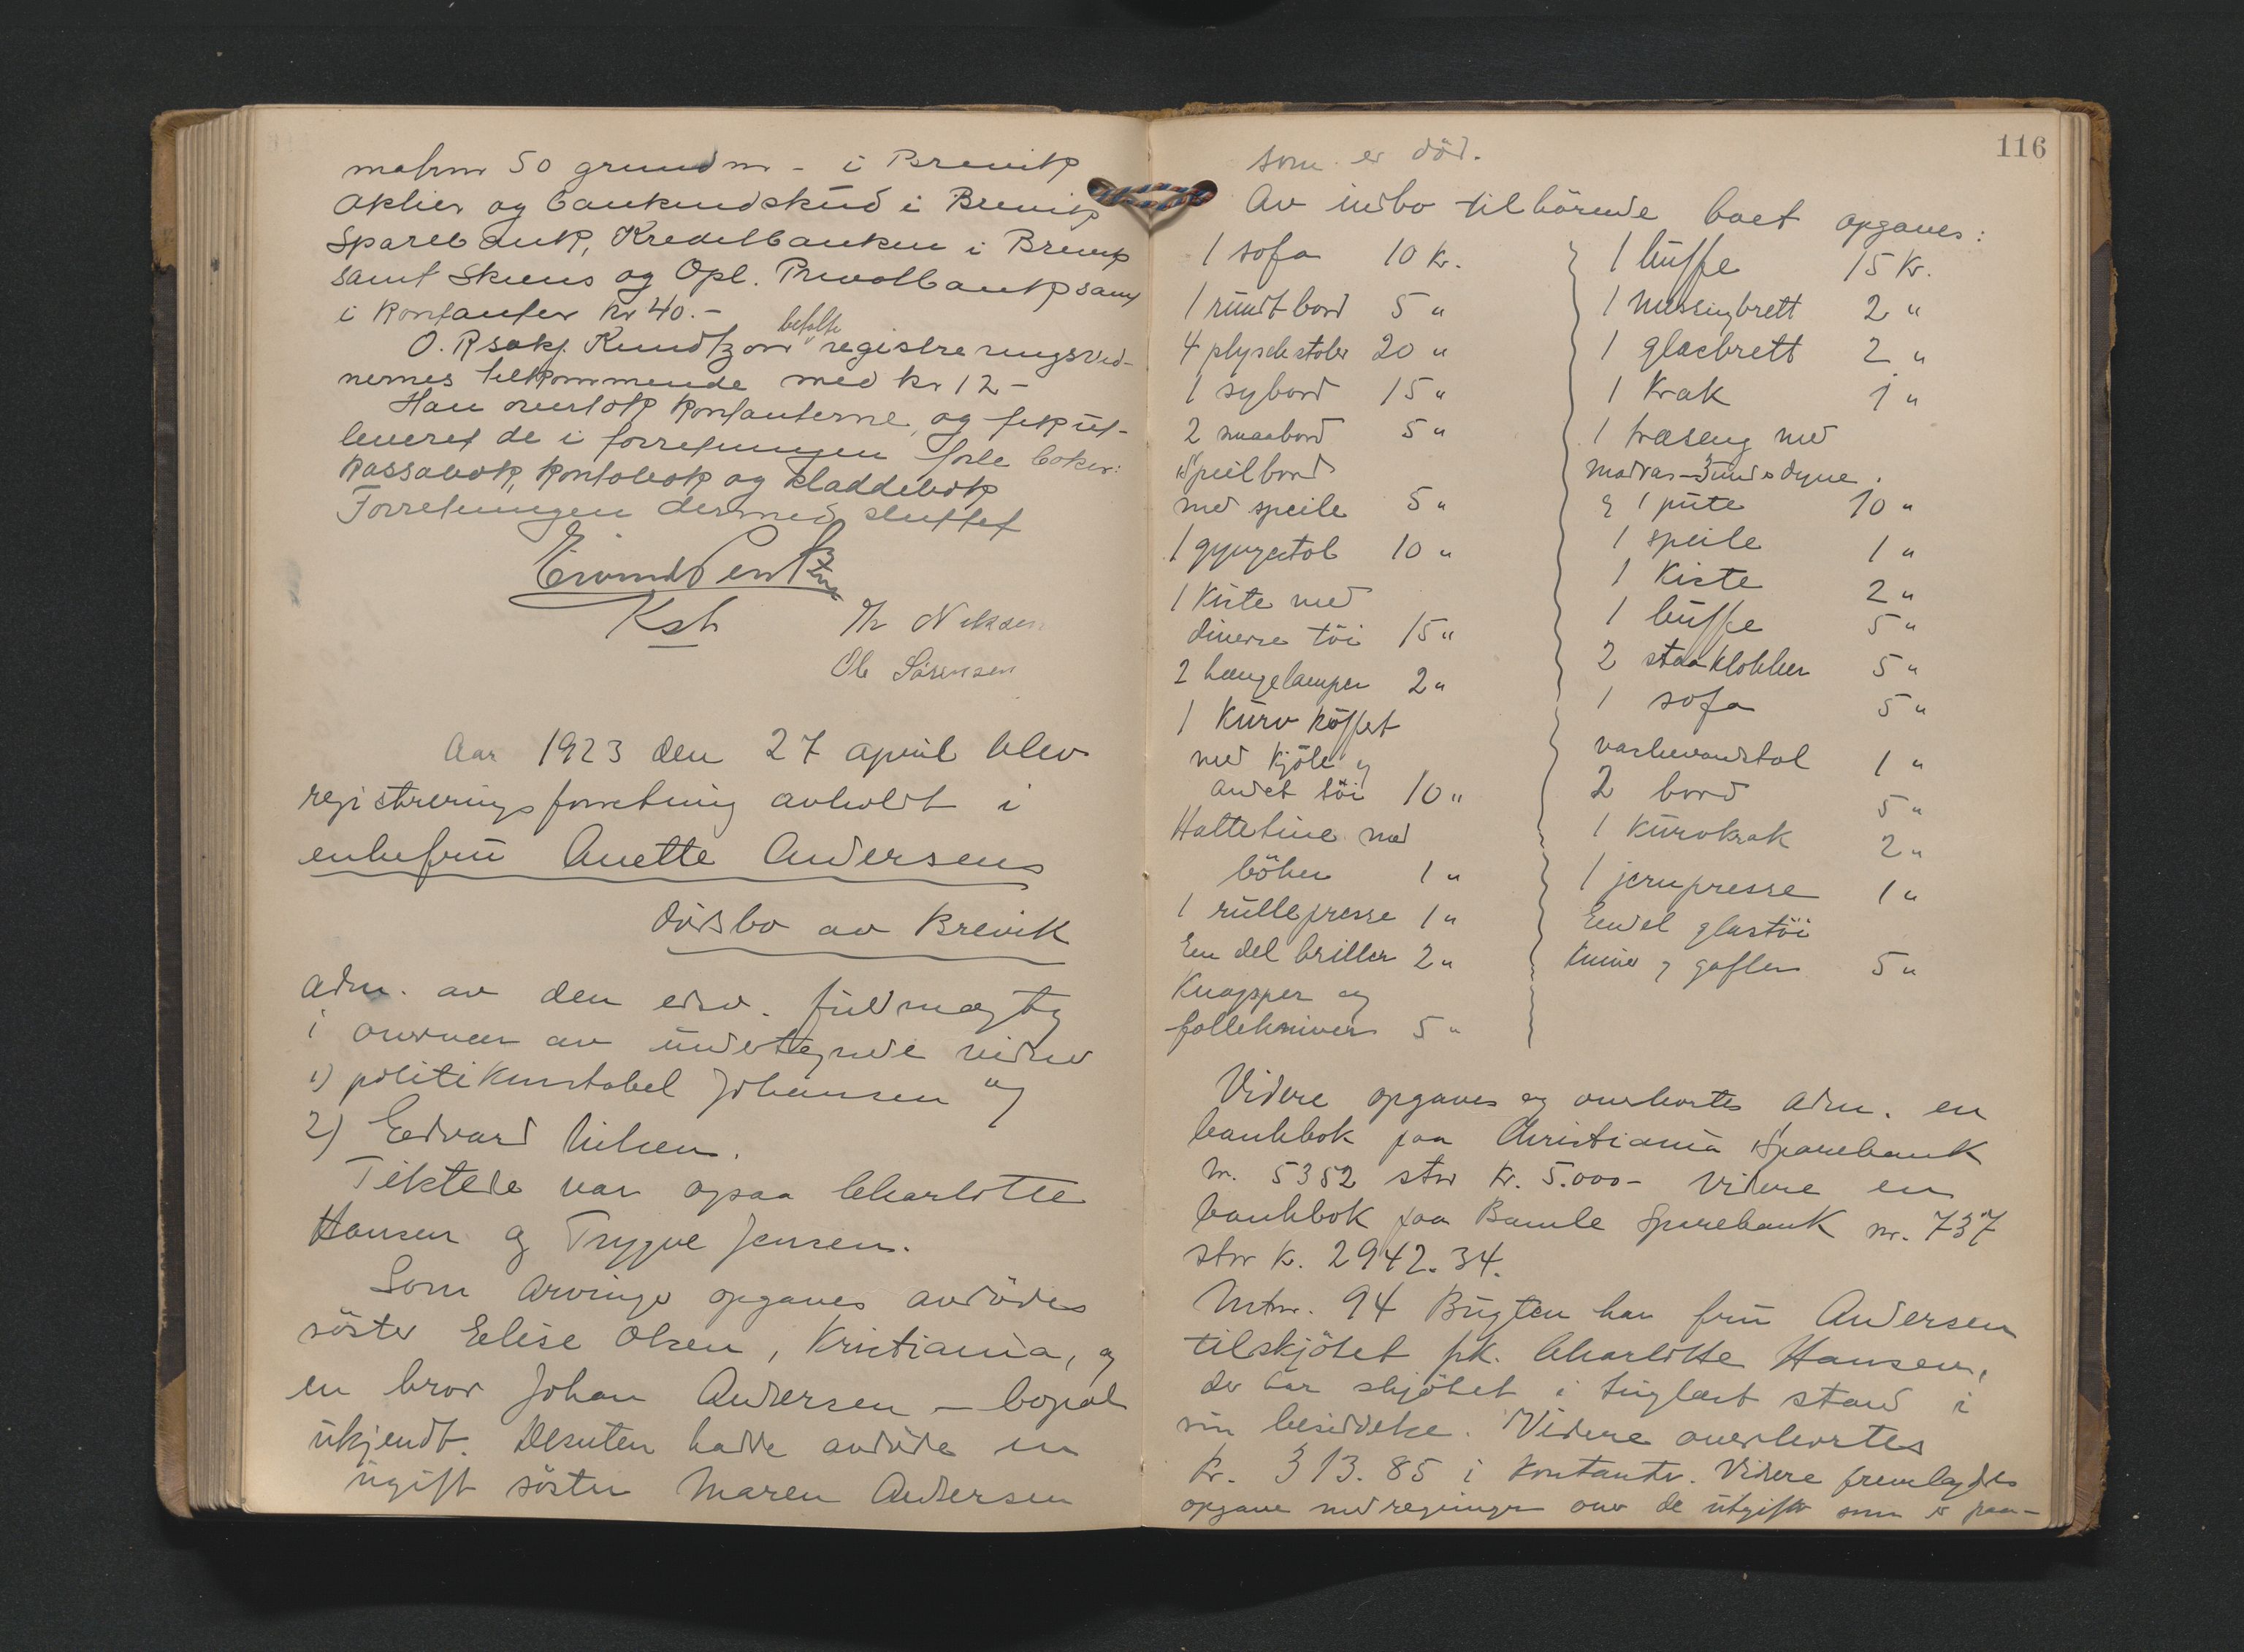 matrnr 50 grundnr - i Brevik
Aktier og bankindskud i Brevik
Sparebank, Kreditbanken i Brevik
samt Skiens og Opl. Privatbank samt
i kontanter kr 40.-
O. Rsakf. Knudtzon betalte registreringsvid-
nernes tilkommende med kr 12-
Han overtok kontanterne, og fik ut-
leveret de i forretningen førte bøker:
Kassabok, kontobok og kladdebok
Forretningen dermed sluttet
Kst
Th Nilsen
Ole Sørensen
Aar 1923 den 27 april blev
registreringsforretning avholdt i
enkefru Anette Andersens
dødsbo av Brevik
adm. av den edsv. fuldmægtig
i overvær av undertegnede vidner
1) politikonstabel Johansen og
2) Edvard Nilsen.
Tilstede var ogsaa Charlotte
Hansen og Trygve Jensen.
Som arvinger opgaves avdødes
søster Elise Olsen, Kristiania, og
en bror Johan Andersen - bopæl
ukjendt. Desuten hadde avdøde en
ugift søster Maren Andersen
116
som er død.
Av indbo tilhørende boet opgaves:
1 sofa 10 kr.
1 rundt bord 5 "
4 plyschstoler 20 "
1 sybord 15 "
2 smaabord 5 "
Speilbord
med speile 5 "
1 gyngestol 10 "
1 Kiste med
diverse töi 15 "
2 hængelamper 2 "
1 Kurv köffert
med kjöle og
andet töi 10 "
Hattetine med
böker 1 "
1 rullepresse 1 "
En del briller 2 "
Knapper og
follekniver 5 "
1 buffe 15 kr.
1 messingbrett 2 "
1 glasbrett 2 "
1 Krak 1 "
1 træseng med
madras - dyne
& 1 pute 10 "
1 speile 1 "
1 Kiste 2 "
1 buffe 5 "
2 staaklokker 5 "
1 sofa 5 "
vaskevandstol 1 "
2 bord 5 "
1 Kurvkrak 2 "
1 jernpresse 1 "
Endel glastöi
Kniver & gafler 5 "
Videre opgaves og overlevertes adm. en
bankbok paa Christiania Sparebank
nr. 5352 stor kr. 5.000- Videre en
bankbok paa Bamle Sparebank nr. 737
stor kr. 2942.34.
Mtnr. 94 Bugten har fru Andersen
tilskjötet frk. Charlotte Hansen,
der har skjötet i tinglæst stand i
sin besiddelse. Videre overlevertes
kr. 313.85 i kontanter. Videre fremlagdes
opgave med regninger over de utgifter som er paa-